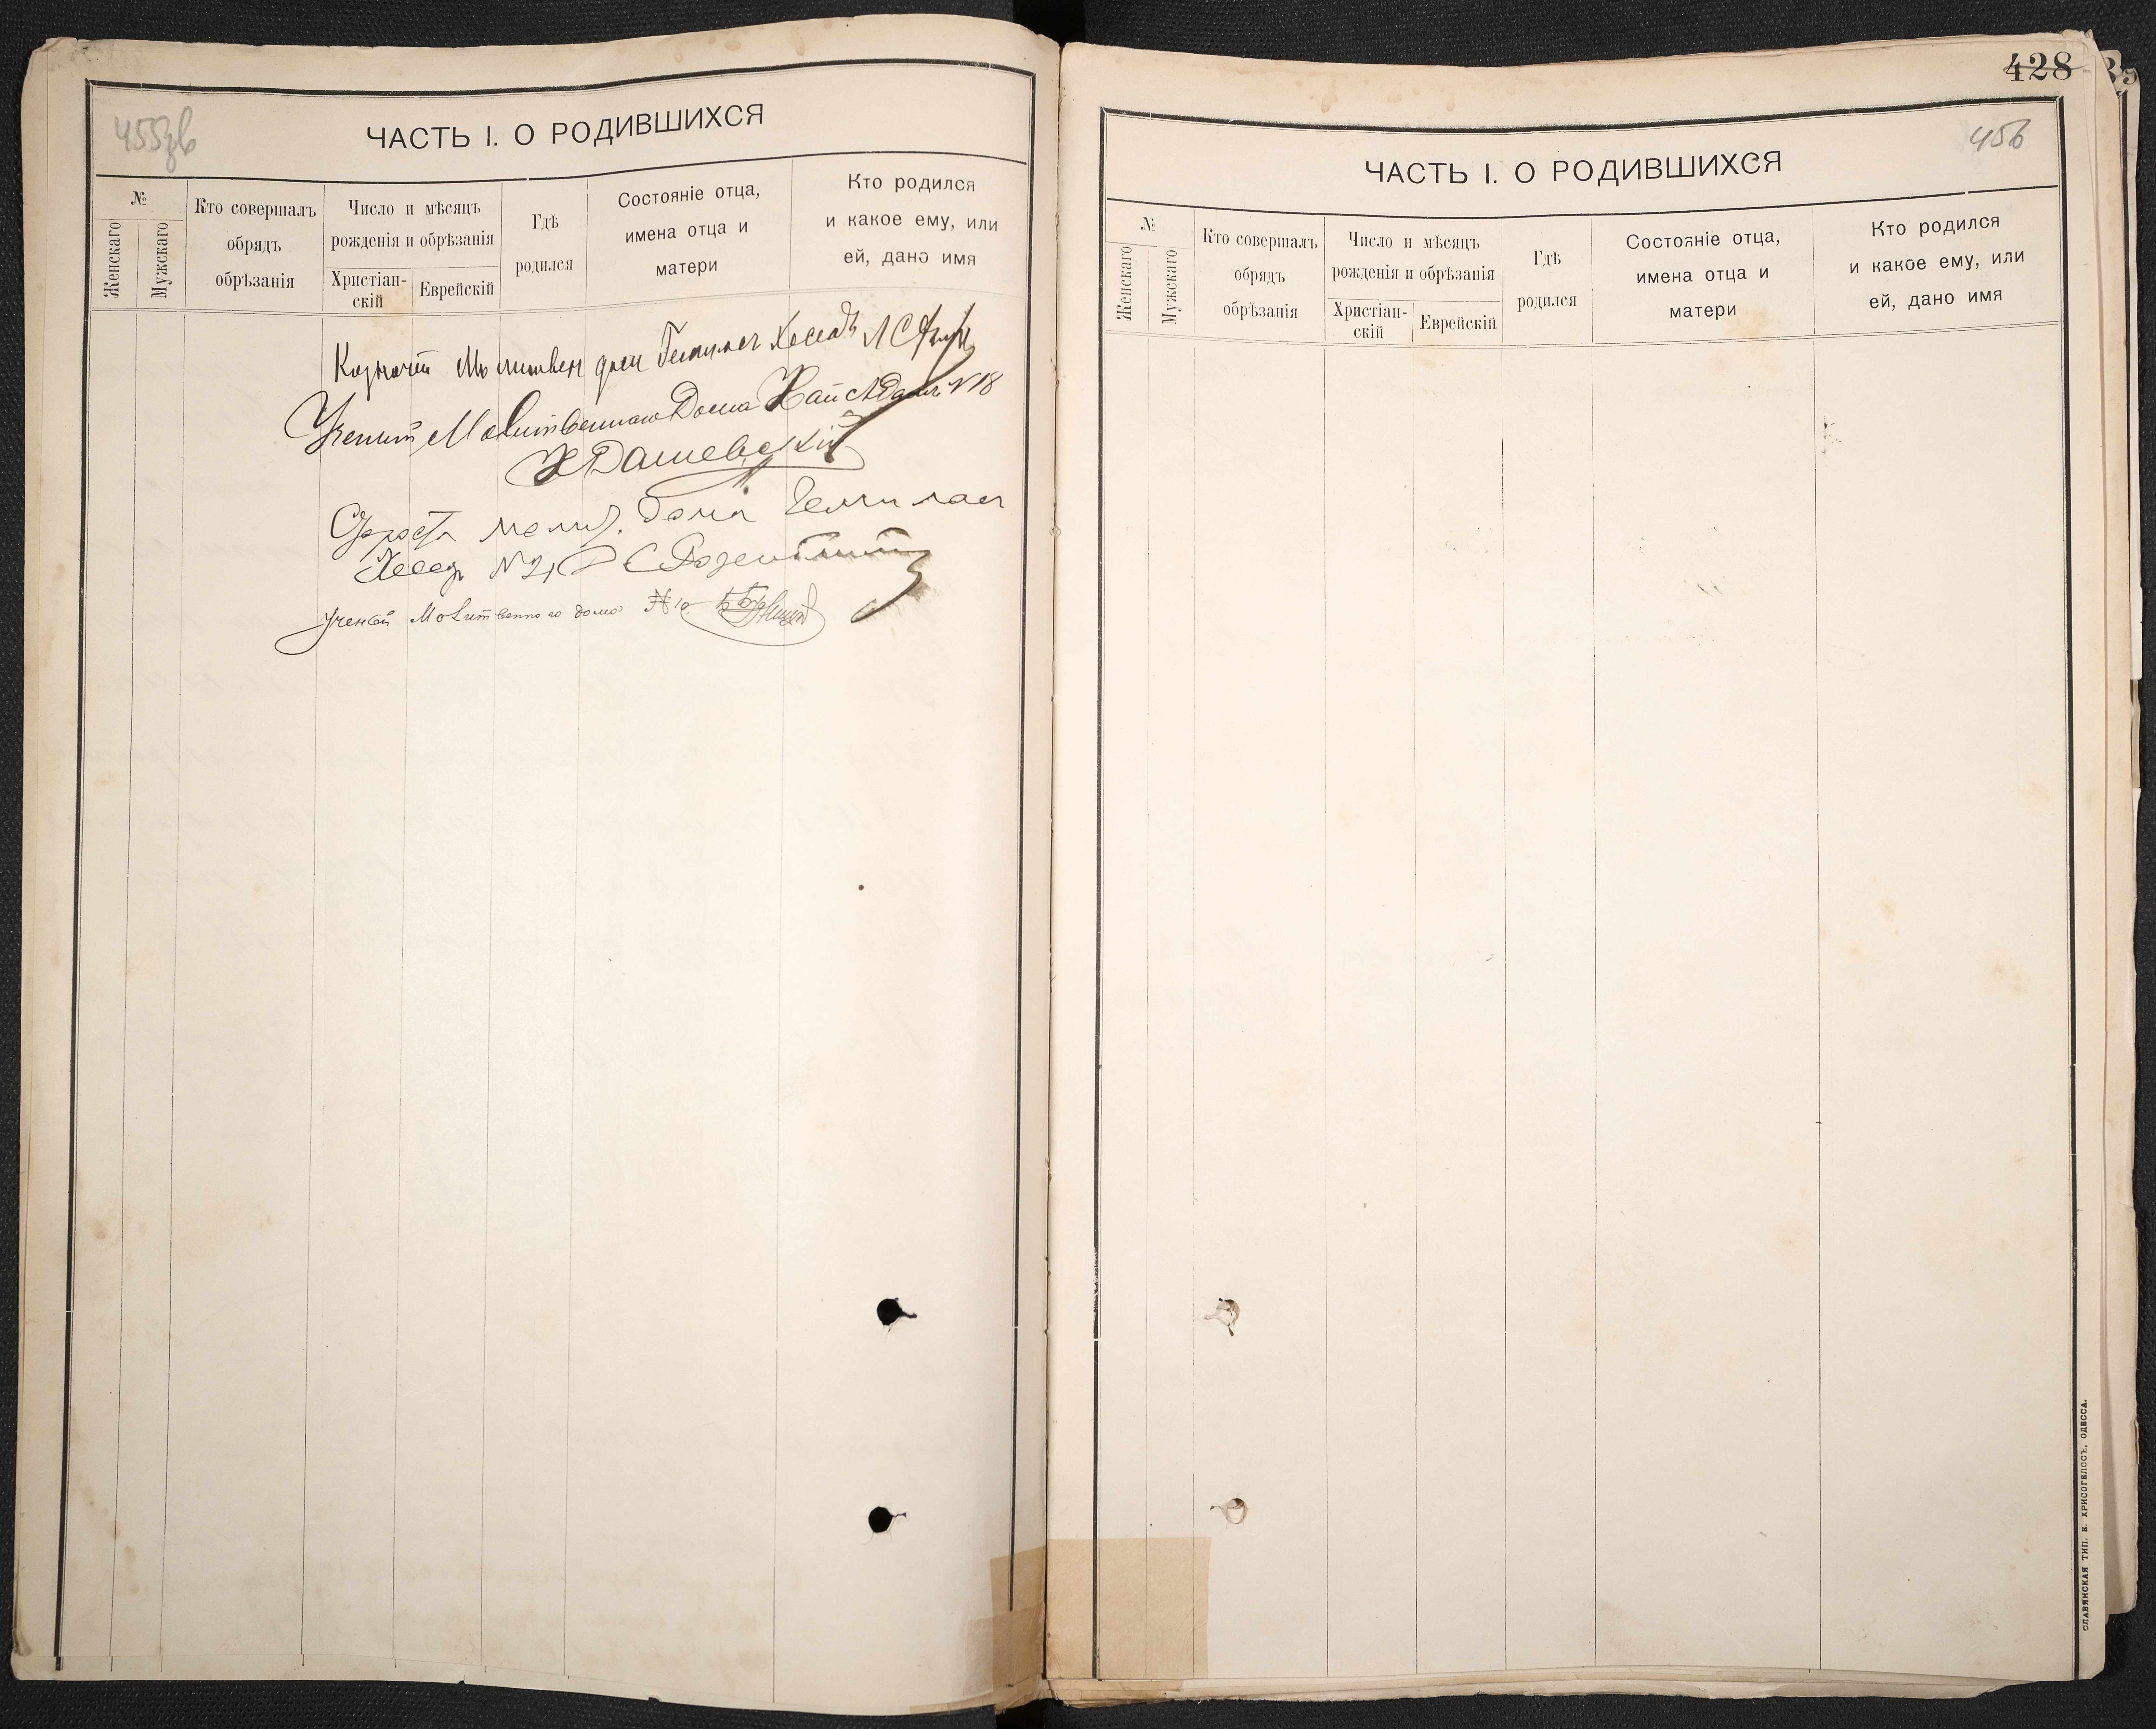 455
ЧАСТЬ I. О РОДИВШИХСЯ
№
Женскаго
Мужскаго
Кто совершалъ
обрядъ
обрѣзанія
Число и мѣсяцъ
рожденія и обрѣзанія
Христіан-
скій
Еврейскій
Гдѣ
родился
Состояніе отца,
имена отца и
матери
Кто родился
и какое ему, или
ей, дано имя
Казначей Молитвен дома Гемилас Хеседъ
Ученый Молитвеннаго Дома Хай Адам №18
Х Дашевскій
Староста молит. дома Гемилас
Хесед №21
Ученый Молитвенного дома № 10
428
456
ЧАСТЬ I. О РОДИВШИХСЯ
№
Женскаго
Мужскаго
Кто совершалъ
обрядъ
обрѣзанія
Число и мѣсяцъ
рожденія и обрѣзанія
Христіан-
скій
Еврейскій
Гдѣ
родился
Состояніе отца,
имена отца и
матери
Кто родился
и какое ему, или
ей, дано имя
СЛАВЯНСКАЯ ТИП. Н. ХРИСОГЕЛОСЪ, ОДЕССА.